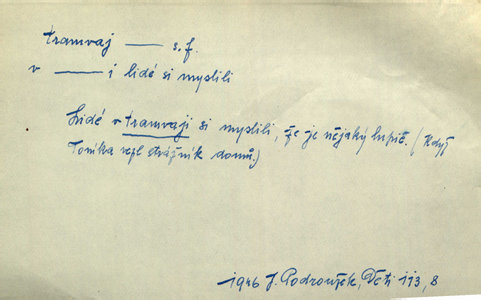 tramvaj —— s. f.
v —— i lidé si myslili
Lidé v tramvaji si myslili, že je nějaký lupič. (Když
Toníka vedl strážník domů.)
1946 J. Podroužek, Děti 113, 8